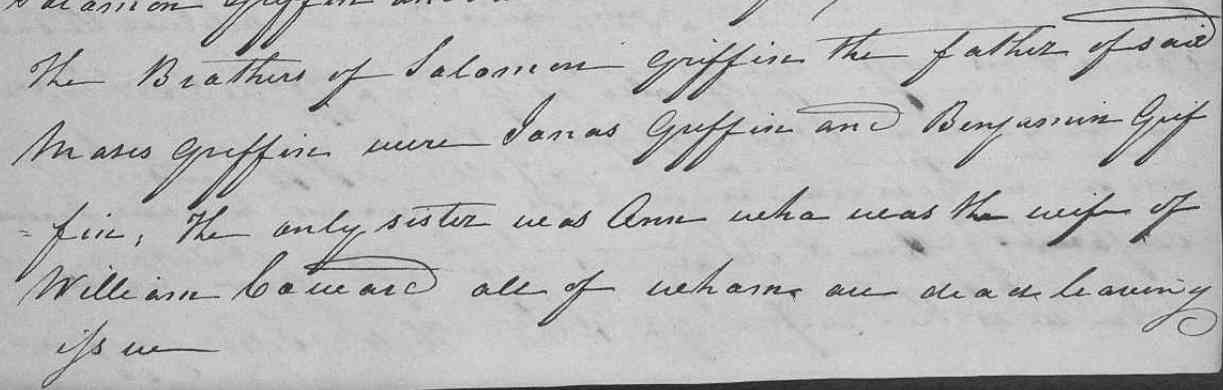 Solomon Griffin
The Brothers of Solomon Griffin the father of said
Moses Griffin were Jonas Griffin and Benjamin Grif
= fin, The only sister was Ann who was the wife of
William Coward all of whom are dead leaving
issue